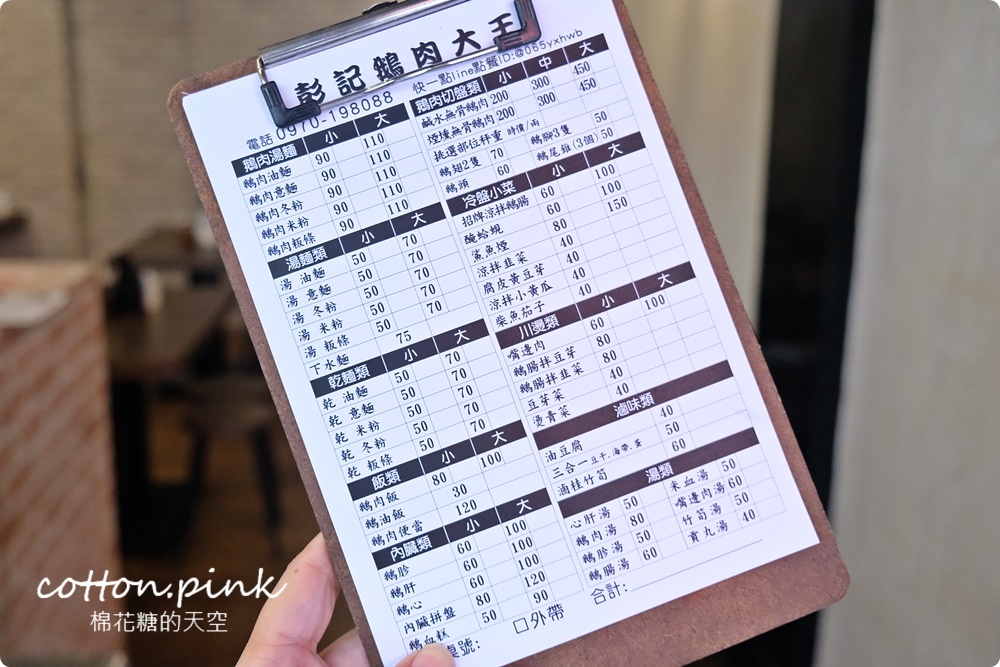 彭記鵝肉大王
電話 0970-198088 快一點line點餐ID:@065yxhwb
鵝肉湯麵 小 大
鵝肉油麵 90 110
鵝肉意麵 90 110
鵝肉冬粉 90 110
鵝肉米粉 90 110
鵝肉板條 90 110
湯麵類 小 大
湯 油麵 50 70
湯 意麵 50 70
湯 冬粉 50 70
湯 米粉 50 70
湯 板條 50 70
下水麵 75
乾麵類 小 大
乾 油麵 50 70
乾 意麵 50 70
乾 米粉 50 70
乾 冬粉 50 70
乾 板條 50 70
飯類 小 大
鵝肉飯 80 100
鵝油飯 30
鵝肉便當 120
內臟類 小 大
鵝胗 60 100
鵝肝 60 100
鵝心 60 100
內臟拼盤 80 120
鵝血糕 50 90
桌號: 口外帶
鵝肉切盤類 小 中 大
鹹水無骨鵝肉 200 300 450
煙燻無骨鵝肉 200 300 450
挑選部位秤重 時價/兩
鵝翅2隻 70 鵝腳3隻 50
鵝頭 60 鵝尾錐(3個) 50
冷盤小菜 小 大
招牌涼拌鵝腸 60 100
醃蛤蜆 60 100
鯊魚煙 80 150
涼拌韭菜 40
腐皮黃豆芽 40
涼拌小黃瓜 40
柴魚茄子 40
川燙類 小 大
嘴邊肉 60 100
鵝腸拌豆芽 80
鵝腸拌韭菜 80
豆芽菜 40
燙青菜 40
滷味類
油豆腐 40
三合一豆干,海帶,蛋 50
滷桂竹筍 60
湯類
心肝湯 50 米血湯 50
鵝肉湯 80 嘴邊肉湯 60
鵝胗湯 50 竹筍湯 50
鵝腸湯 60 貢丸湯 40
合計:
cotton.pink
棉花糖的天空